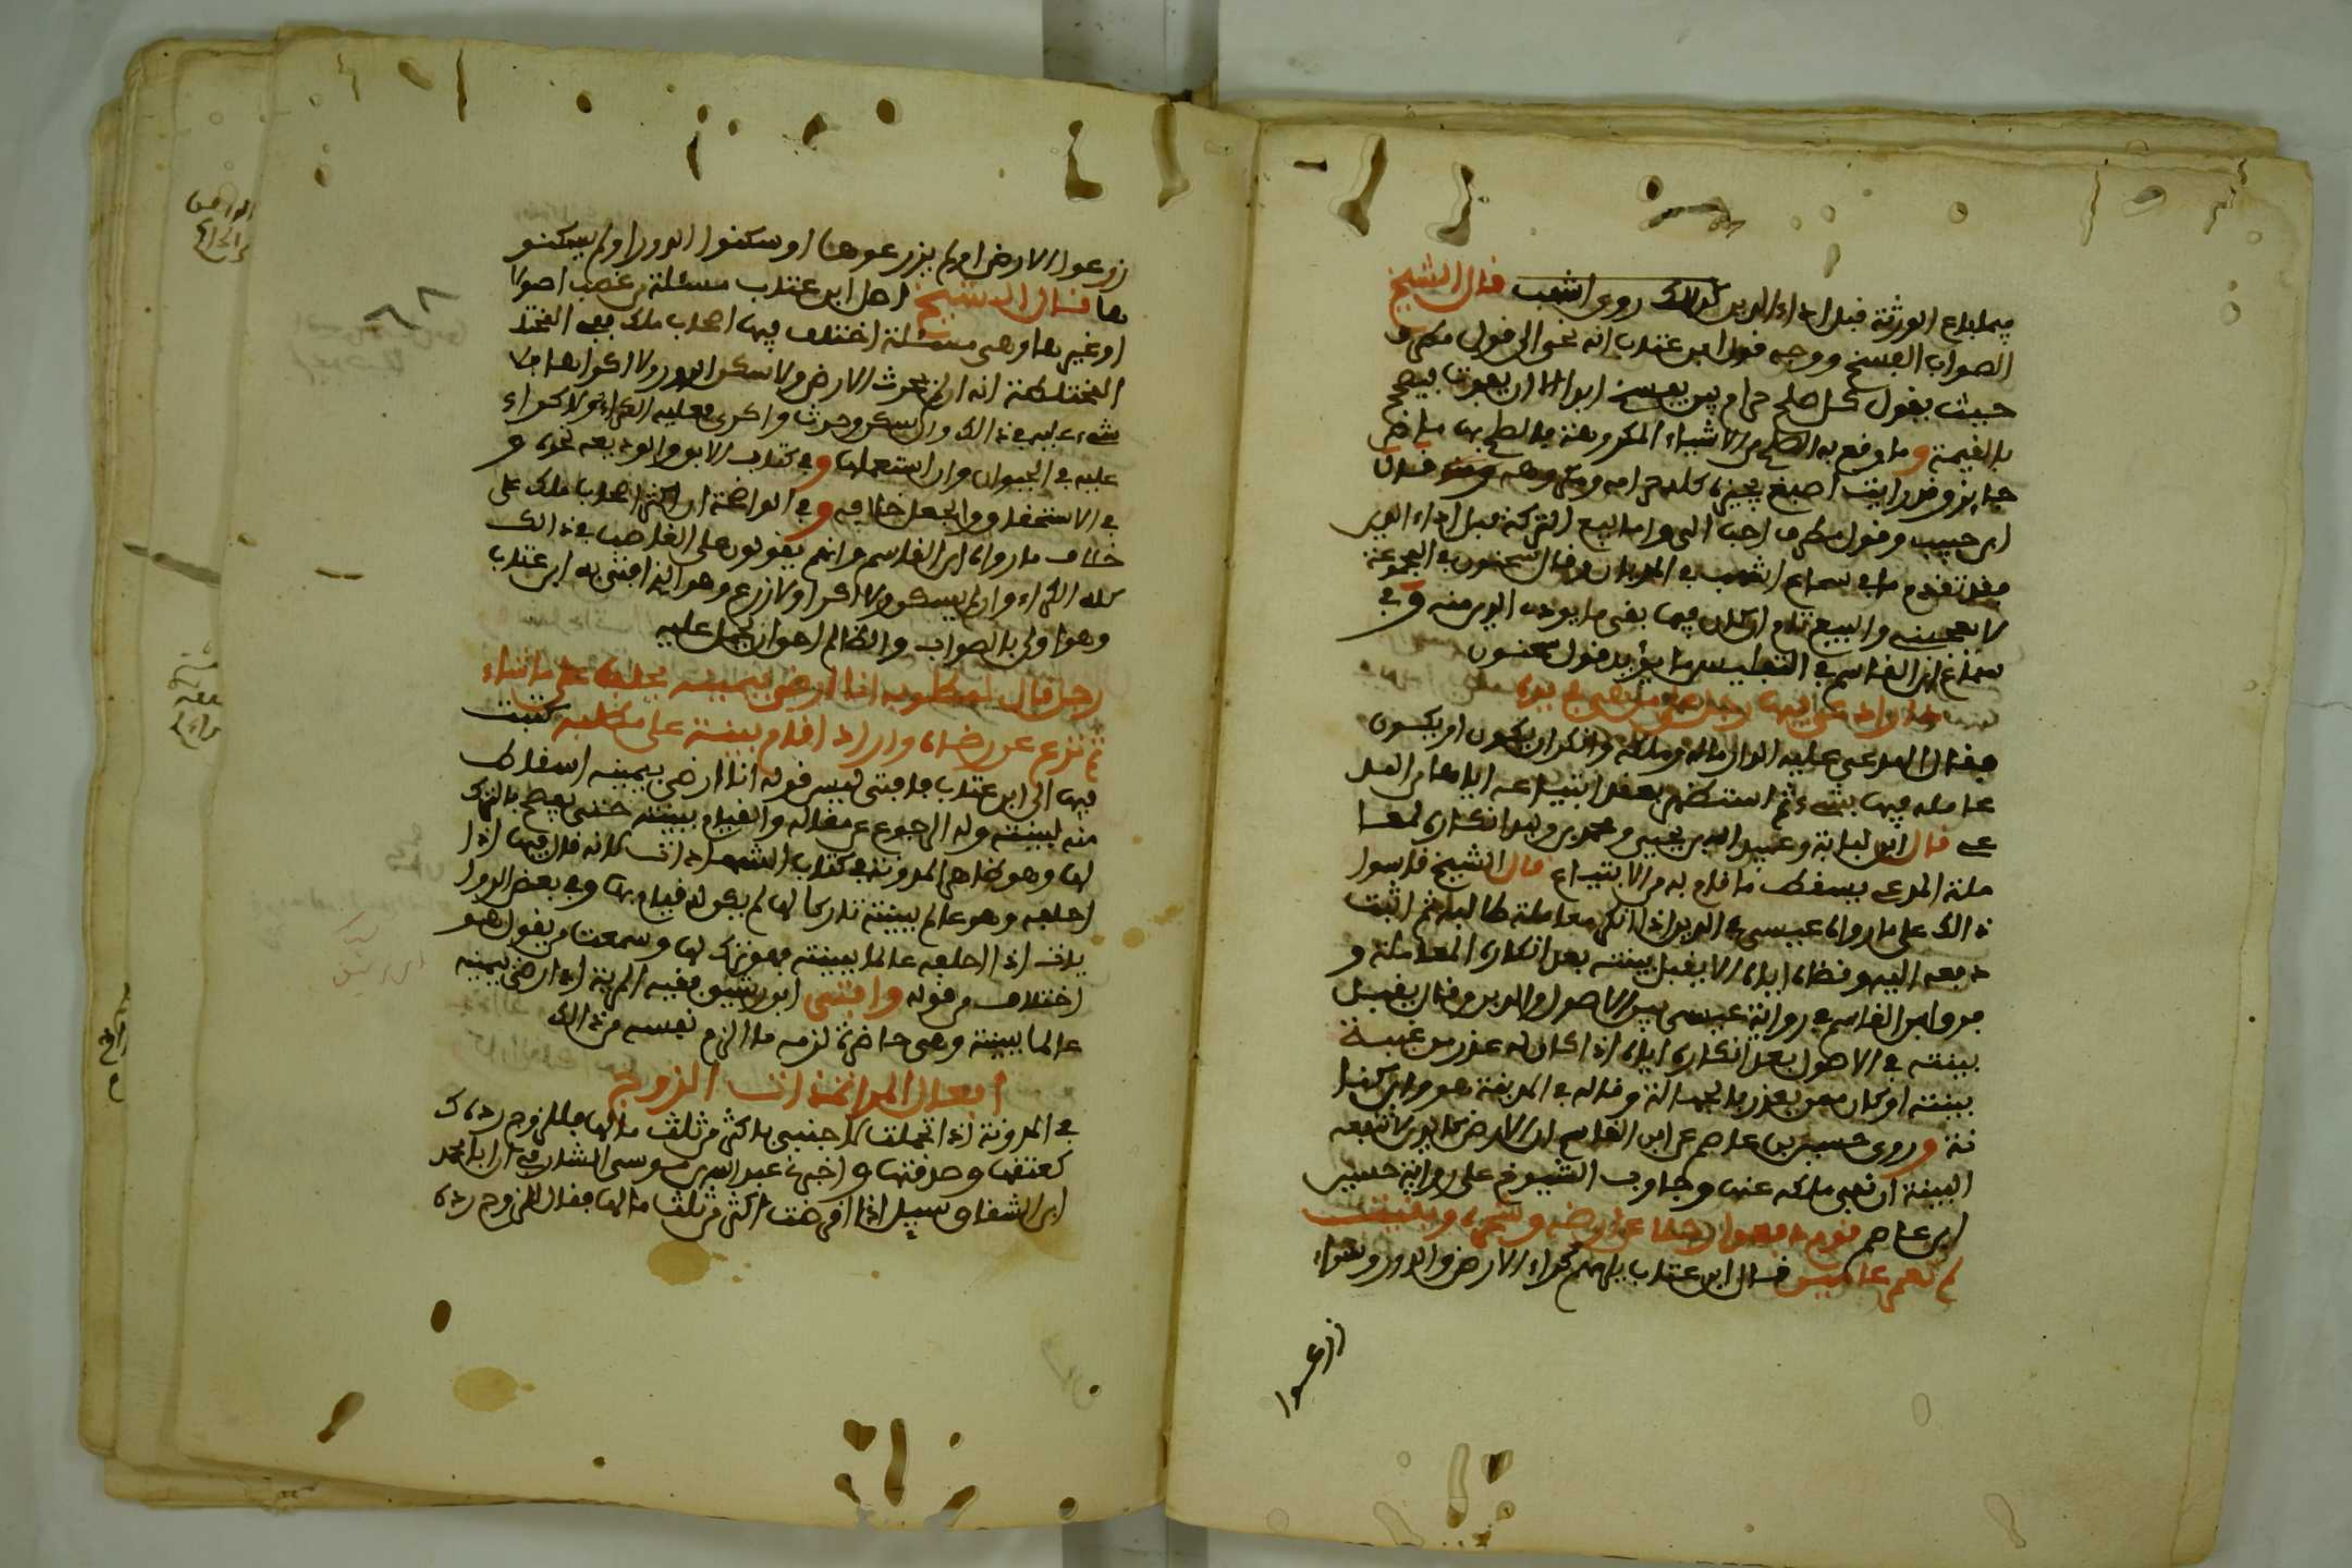 فيما باع الورثة قبل اداء الدين كذلك روى اشهب قال الشيخ
الصواب الفسخ ووجه قول ابن عتاب انه نحى الى قول مطرف
حيث يقول كل صلح حرام يفسخ ابدا الا ان يفوت فيصح
بالقيمة وما وقع به الصلح من الاشياء المكروهة فالصلح بها ماض
جايز وقد رايت اصبغ يجيزه كله حرامه ومكروهه قال
ابن حبيب وقول مطرف احب الي واما بيع التركة قبل اداء الدين
فقد تقدم ما في سماع اشهب في المديان وقال سحنون في المجموعة
لا يعجبني والبيع تام ان كان فيما بقي ما يودى الدين منه وفي
سماع ابن القاسم في التفليس ما يؤيد قول سحنون
دار ادعى فيها رجل هي في يده
فقال المدعى عليه الدار مالي وملكي وانكر ان يكون
عامله فيها بشيء ثم استظهر بعقد ابتياعه اياها من المد
عي قال ابن لبابة وعبيد الله بن يحيى ومحمد بن وليد انكاره لمعا
ملة المدعي يسقط ما قام به من الابتياع قال الشيخ قاسوا
ذالك على ما رواه عيسى في الدين اذا انكر معاملة طالبه ثم اثبت
دفعه اليه وقضاه اياه لا يقبل بينته بعد انكاره المعاملة و
فرق ابن القاسم في رواية عيسى بين الاصول والدين وقال يقبل
بينته في الاصول بعد انكاره اياه اذا كان له عذر من غيبة
بينته او كان ممن يعذر بالجهالة وقاله في المدينة هو وابن كنا
نة وروى حسين بن عاصم عن ابن القاسم ان الارض كالدين لا تنفعه
البينة ان نفى ملكه عنها وجاوب الشيوخ على رواية حسين
ابن عاصم قوم دفعوا رجلا عن ارضه وشجره وبقيت
لم تعمر عامين قال ابن عتاب يلزمهم كراء الارض والدور وسواء
زرعوا
زرعوا الارض او لم يزرعوها او سكنوا الدور او لم يسكنو
ها قال الشيخ اصل ابن عتاب مسئلة من غصب اصولا
او غيرها وهي مسئلة اختلف فيها اصحاب مالك ففي المختلـ
المختلطة انه ان لم يحرث الارض ولا سكن الدور ولا اكراها فلا
شيء عليه في ذالك وان سكن وحرث واكرى فعليه الكراء ولا كراء
عليه في الحيوان وان استعملها وفي كتاب الابق والوديعة نحوه و
في الاستحقاق والجعل خلافه وفي الواضحة ان اكثر اصحاب مالك على
خلاف ما رواه ابن القاسم وانهم يقولون على الغاصب في ذالك
كله الكراء وان لم يسكن ولا اكرا ولا زرع وهو الذي افتى به ابن عتاب
وهو اولى بالصواب والظالم احق ان يحمل عليه
رجل قال لمطلوبه انا ارضى بيمينه يحلف على ما شاء
ثم نزع عن رضاه واراد اقام بينة على مطلبه كتبت
فيها الى ابن عتاب فافتى ليس قوله انا ارضى بيمينه اسقاط
منه لبينته وله الرجوع عن مقاله والقيام ببينته حتى يصرح بالترك
لها وهو ظاهر المدونة في كتاب الشهادات لانه قال فيها اذا
احلفه وهو عالم ببينته تاركا لها لم يكن له قيام بها وفي بعض الروا
يات اذا احلفه عالما ببينته فهو ترك لها وسمعت من يقول هو
اختلاف من قوله وافتى ابن رشيق فقيه المرية اذا رضي بيمينه
عالما ببينته وهي حاضرة لزمه ما الزم نفسه من ذالك
افعال المراة ذات الزوج
في المدونة اذا تحملت لاجنبي باكثر من ثلث مالها فللزوج رده ك
كعتقها وصدقتها واخبرنا عبد الله بن موسى الشارقي ان ابا محمد
ابن الشقاق سيل اذا اقرضت اكثر من ثلث مالها فقال للزوج رده